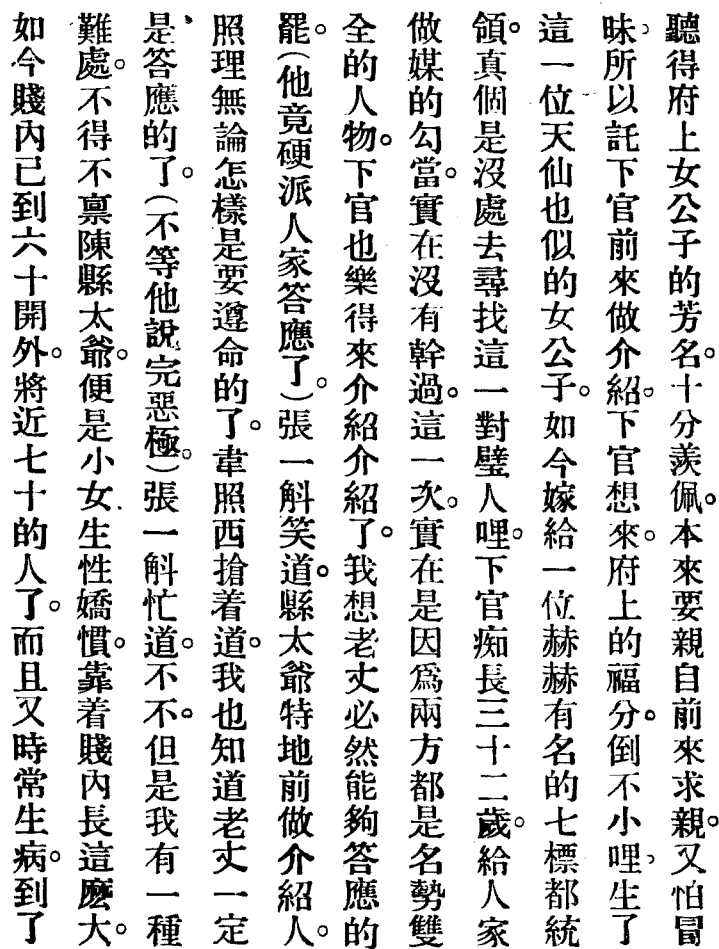 聽得府上女公子的芳名。十分羨佩。本來要親自前來求親。又怕冒
昧。所以託下官前來做介紹。下官想來。府上的福分。倒不小哩。生了
這一位天仙也似的女公子。如今嫁給一位赫赫有名的七標都統
領。真個是沒處去尋找這一對璧人哩。下官痴長三十二歲。給人家
做媒的勾當。實在沒有幹過。這一次。實在是因爲兩方都是名勢雙
全的人物。下官也樂得來介紹介紹了。我想老丈必然能夠答應的
罷。(他竟硬派人家答應了。)張一斛笑道。縣太爺特地前做介紹人。
照理無論怎樣是要遵命的了。韋照西搶着道。我也知道老丈一定
是答應的了。(不等他說完惡極。)張一斛忙道。不不。但是我有一種
難處。不得不禀陳縣太爺。便是小女生性嬌慣。靠着賤內長這麽大。
如今賤內已到六十開外。將近七十的人了。而且又時常生病。到了